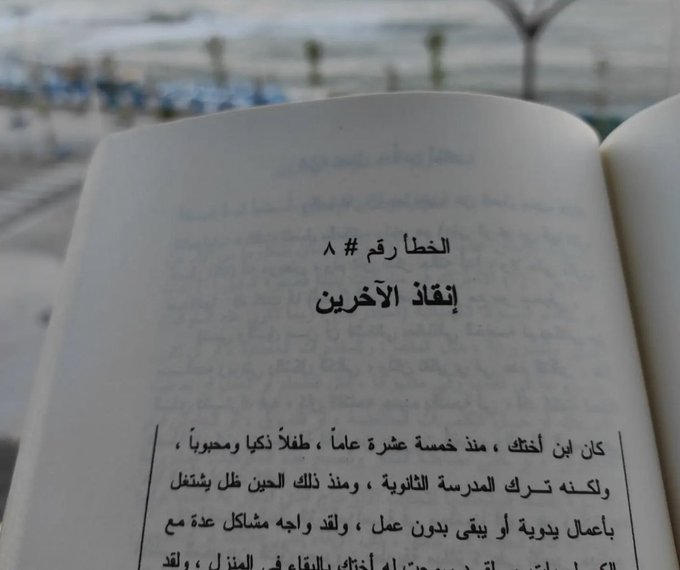 الخطأ رقم # ٨
إنقاذ الآخرين
كان ابن أختك ، منذ خمسة عشرة عاماً ، طفلاً ذكيا ومحبوباً ،
ولكنه تـرك المدرسة الثانوية ، ومنذ ذلك الحين ظل يشتغل
بأعمال يدوية أو يبقى بدون عمل ، ولقد واجه مشاكل عدة مع
له أختك بالبقاء في المنزل ، ولقد